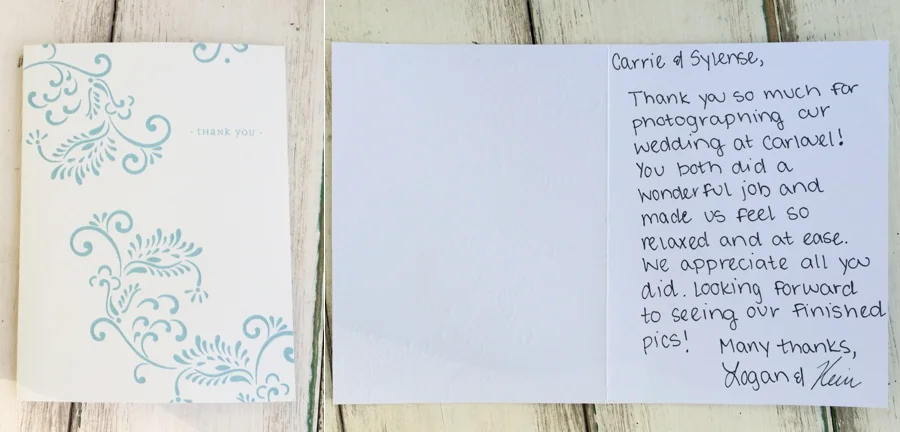 · thank you ·
Carrie & Sylense,
Thank you so much for
photographing our
wedding at Carlovel!
You both did a
wonderful job and
made us feel so
relaxed and at ease.
We appreciate all you
did. Looking forward
to seeing our finished
pics!
Many thanks,
Logan &